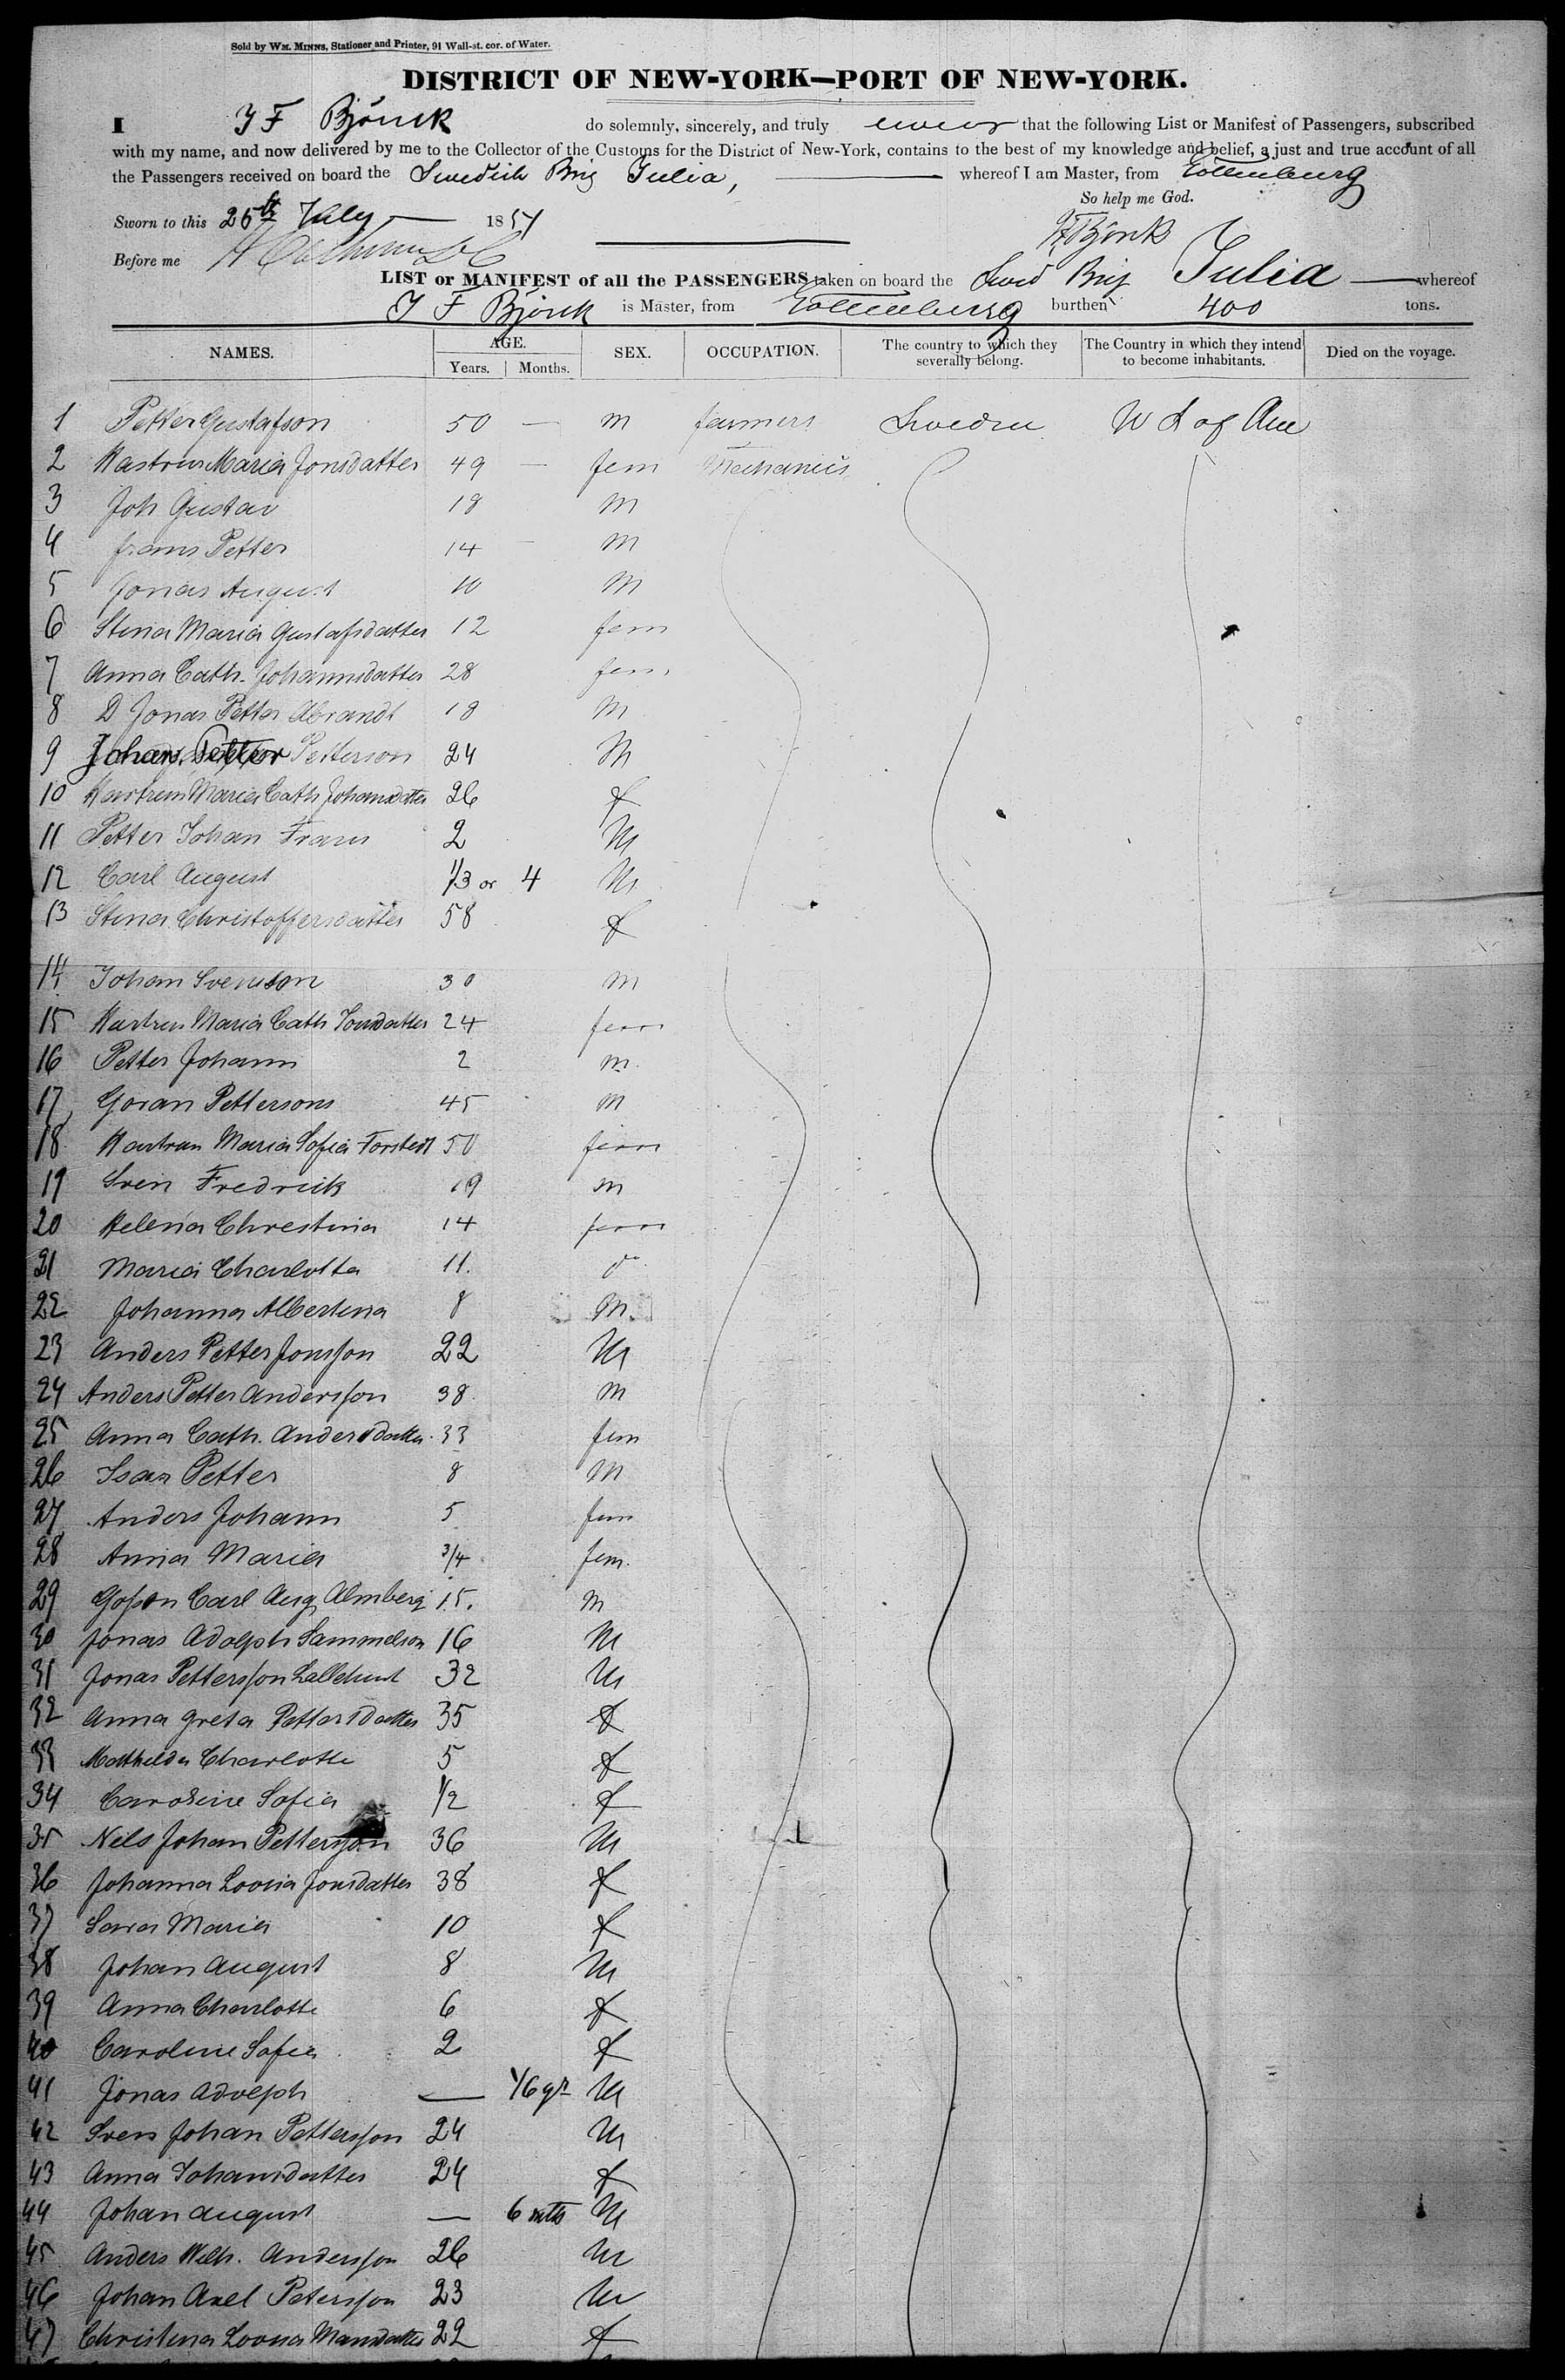 Sold by WM. MINNS, Stationer and Printer, 91 Wall-st. cor. of Water.
DISTRICT OF NEW-YORK—PORT OF NEW-YORK.
I J F Björck do solemnly, sincerely, and truly swear that the following List or Manifest of Passengers, subscribed
with my name, and now delivered by me to the Collector of the Customs for the District of New-York, contains to the best of my knowledge and belief, a just and true account of all
the Passengers received on board the Swedish Brig Julia, whereof I am Master, from Gottenburg
So help me God.
Sworn to this 25th July 1854
J F Björck
Before me
LIST or MANIFEST of all the PASSENGERS taken on board the Swed Brig Julia whereof
J F Björck is Master, from Gottenburg burthen 400 tons.
NAMES. AGE. Years. Months. SEX. OCCUPATION. The country to which they severally belong. The Country in which they intend to become inhabitants. Died on the voyage.
1 Petter Gustafson 50 — m farmers Sweden U S of Ame
2 Hastrun Maria Jonsdatter 49 — fem Mechanics
3 Joh Gustav 18 m
4 frans Petter 14 — m
5 Jonas August 10 m
6 Stina Maria Gustafsdatter 12 fem
7 Anna Cath. Johannsdatter 28 fem
8 D Jonas Petter Abrandt 18 m
9 Johan Petter Petterson 24 m
10 Hustrun Maria Cath Johansdatter 26 f
11 Petter Johan Frans 2 M
12 Carl August 1/3 or 4 M
13 Stina Christoffersdatter 58 f
14 Johan Svenson 30 m
15 Hustrun Maria Cath Jonsdatter 24 fem
16 Petter Johann 2 m
17 Goran Pettersons 45 m
18 Hustrun Maria Sofia Forstedt 50 fem
19 Sven Fredrick 19 m
20 Helena Christina 14 fem
21 Maria Charlotta 11. do
22 Johanna Albertina 8 m.
23 Anders Petter Jonsson 22 M
24 Anders Petter Andersson 38 m
25 Anna Cath. Andersdatter 33 fem
26 Isac Petter 8 m
27 Anders Johann 5 fem
28 Anna Maria 3/4 fem.
29 Carl Aug Almberg 15. m
30 Jonas Adolph Sammelson 16 M
31 Jonas Pettersson 32 M
32 Anna Greta Pettersdatter 35 f
33 Mathilda Charlotte 5 f
34 Caroline Sofia 1/2 f
35 Nils Johan Pettersson 36 M
36 Johanna Lovisa Jonsdatter 38 f
37 Sara Maria 10 f
38 Johan August 8 M
39 Anna Charlotte 6 f
40 Caroline Sofia 2 f
41 Jonas Adolph — 1/6 yr M
42 Sven Johan Pettersson 24 M
43 Anna Johansdatter 24 f
44 Johan August — 6 mths M
45 Anders Wilh. Andersson 26 M
46 Johan Axel Petersson 23 M
47 Christina Lovisa Mansdatter 22 f